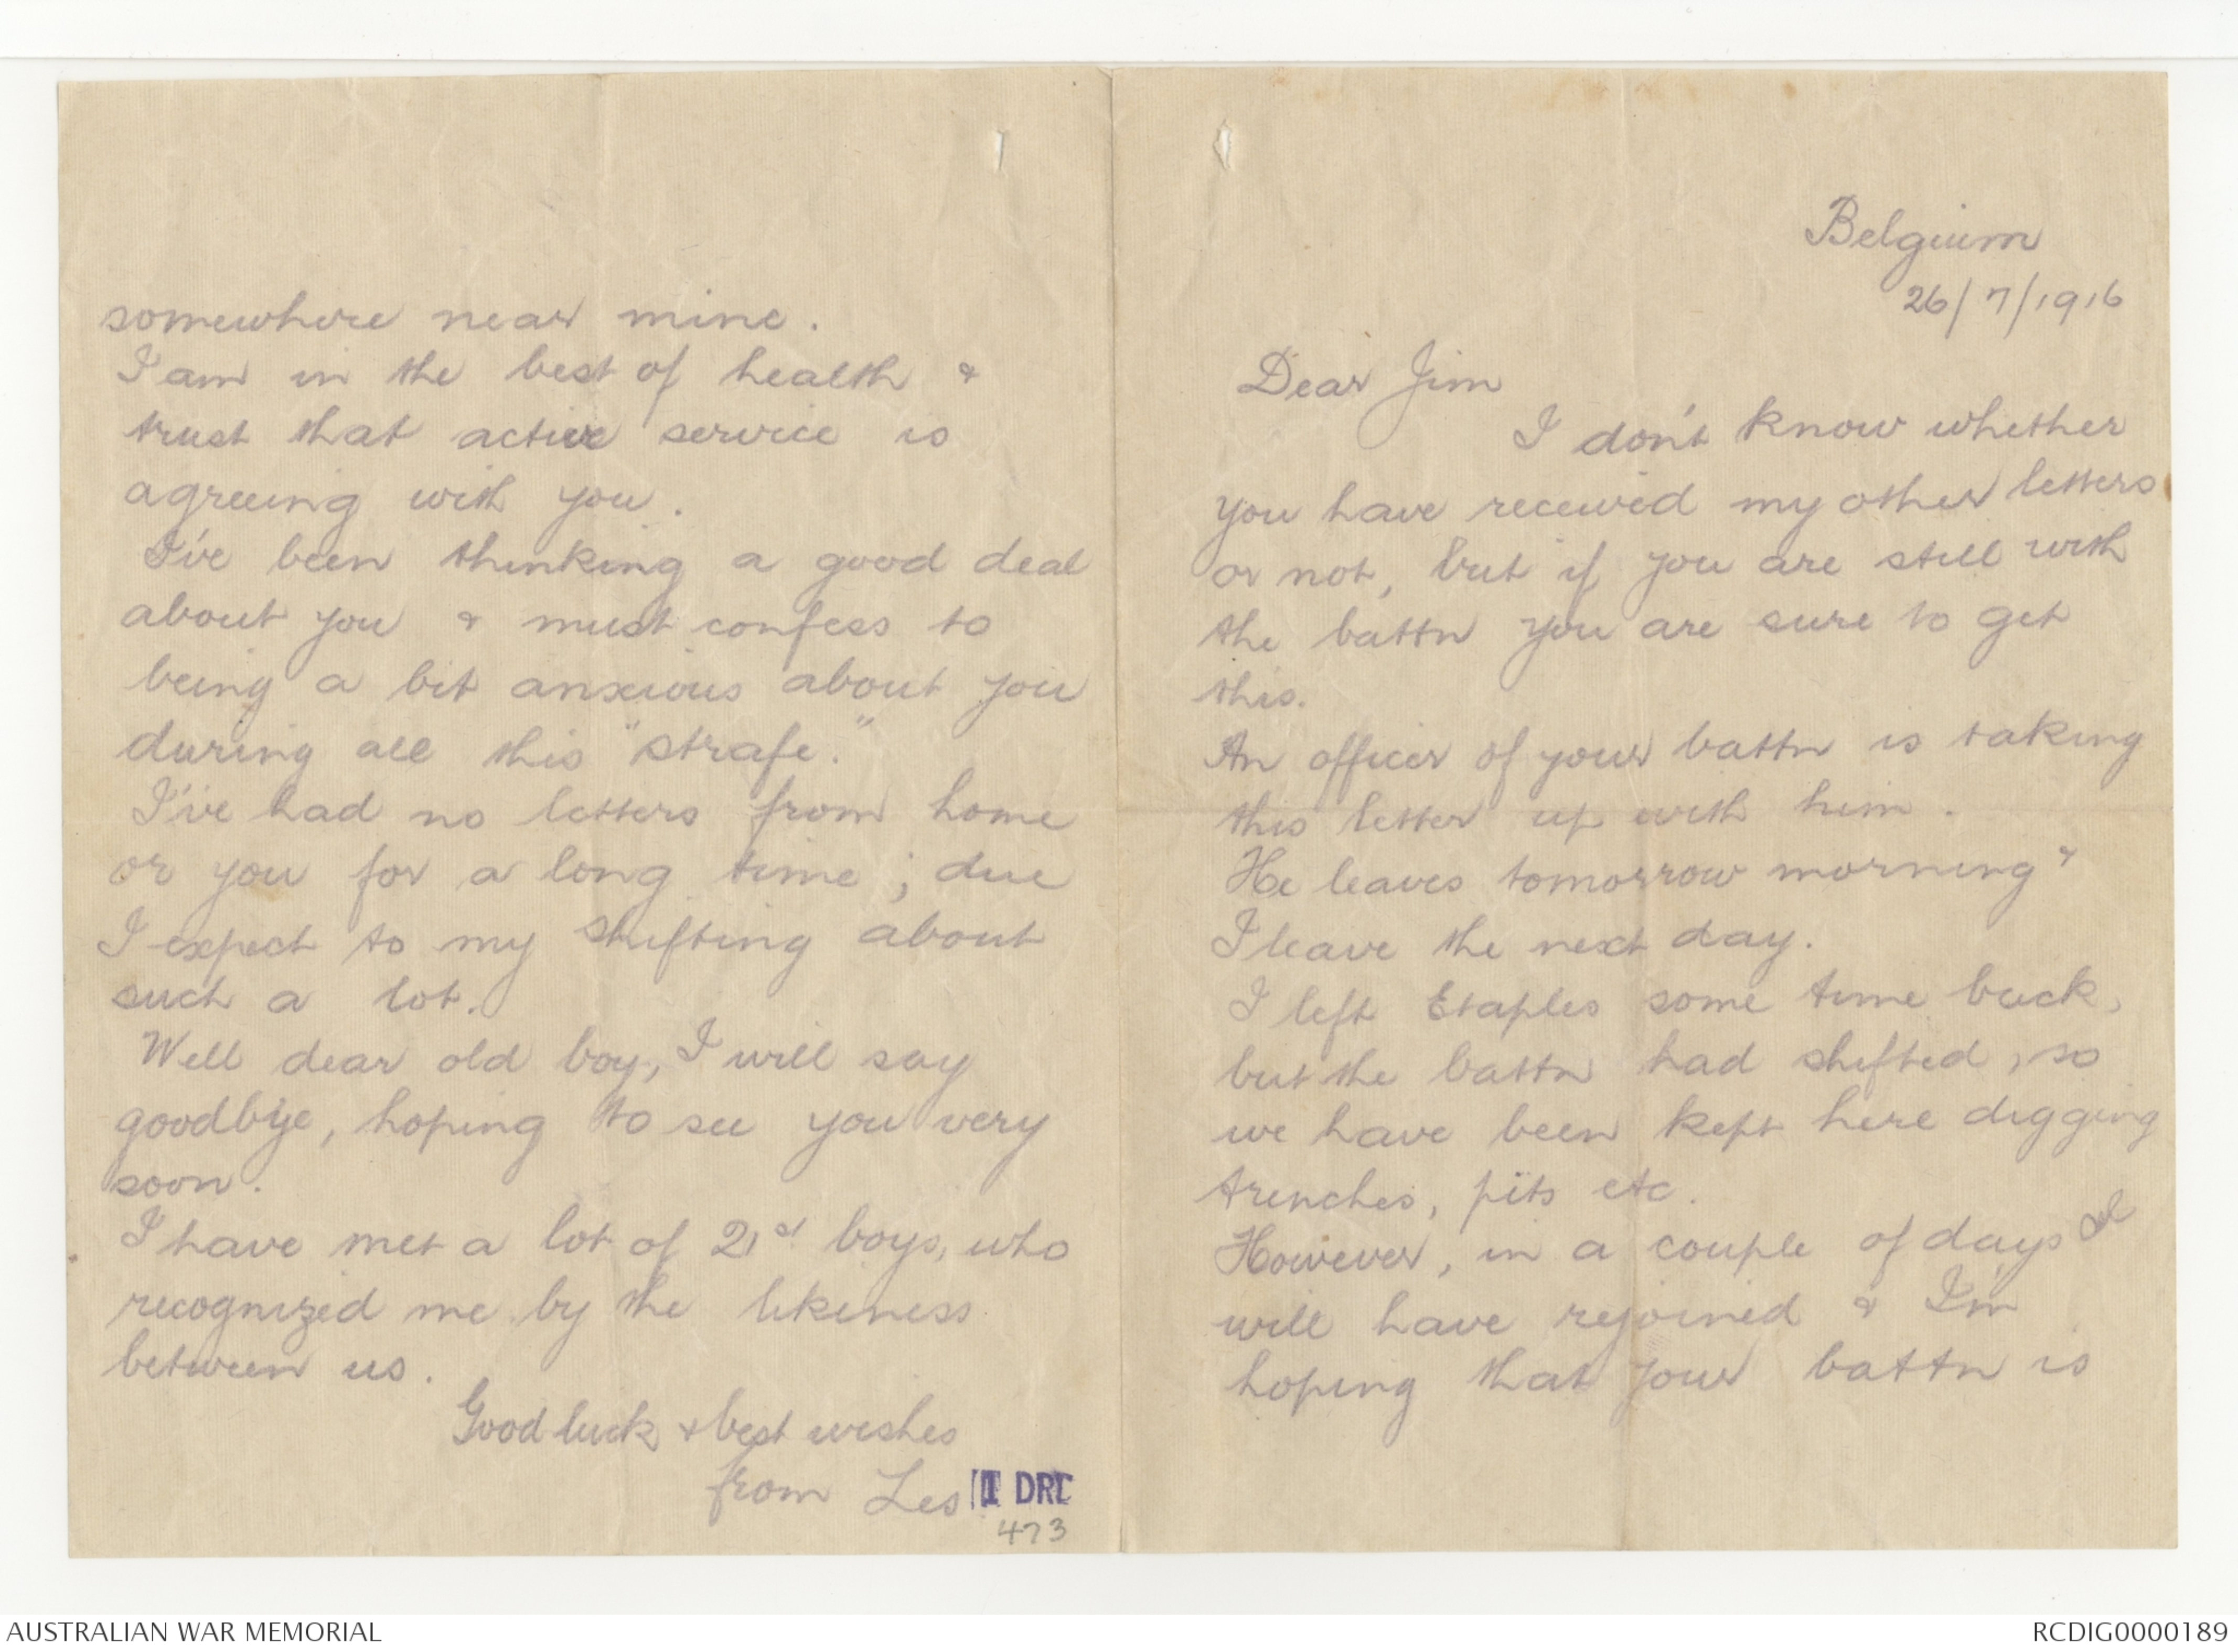 Belgium
26/7/1916
Dear Jim
I don't know whether
you have received my other letters
or not, but if you are still with
the battn you are sure to get
this.
An officer of your battn is taking
this letter up with him.
He leaves tomorrow morning &
I leave the next day.
I left Etaples some time back,
but the battn had shifted, so
we have been kept here digging
trenches, pits etc.
However, in a couple of days I
will have rejoined & I'm
hoping that your battn is
somewhere near mine.
I am in the best of health &
trust that active service is
agreeing with you.
I've been thinking a good deal
about you & must confess to
being a bit anxious about you
during all this "strafe."
I've had no letters from home
or you for a long time; due
I expect to my shifting about
such a lot.
Well dear old boy, I will say
goodbye, hoping to see you very
soon.
I have met a lot of 21st boys, who
recognized me by the likeness
between us.
Good luck & best wishes
from Les
1 DRL
473
AUSTRALIAN WAR MEMORIAL
RCDIG0000189